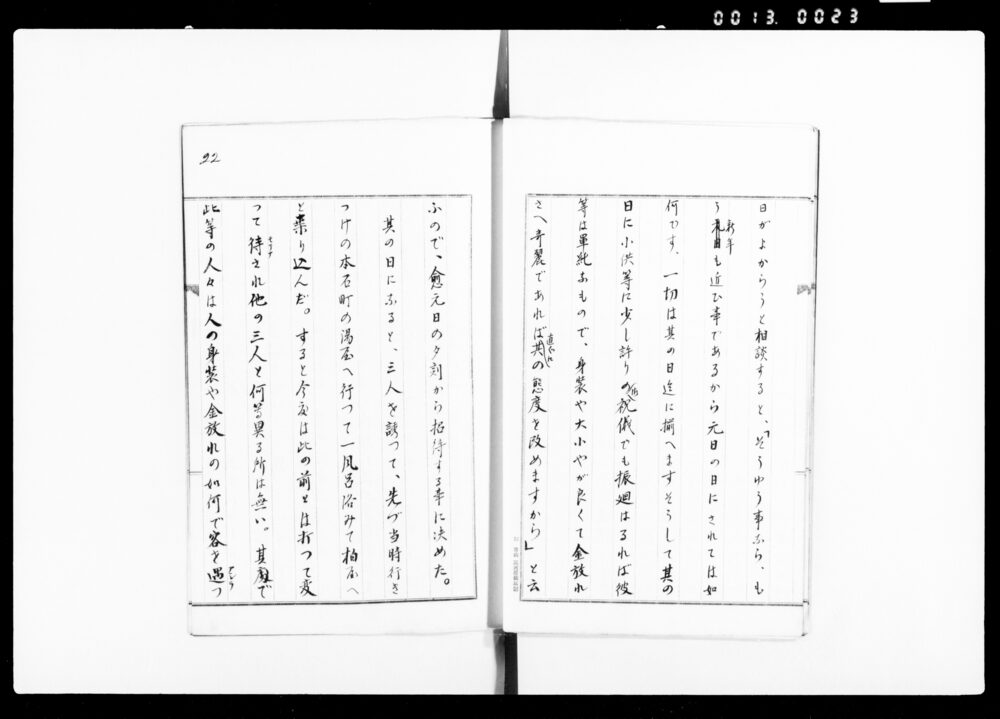 0013. 0023
日がよからうと相談すると、「そうゆう事なら、も
う新年も近ひ事であるから元日の日にされては如
何です、一切は其の日迄に揃へますそうして其の
日に小供等に少し許りの祝儀でも振廻はるれば彼
等は単純なもので、身装や大小やが良くて金放れ
さへ奇麗であれば直ぐに其の態度を改めますから」と云
ふので、愈元日の夕刻から招待する事に決めた。
其の日になると、三人を誘つて、先づ当時行き
つけの本石町の湯屋へ行つて一風呂浴みて柏屋へ
と乗り込んだ。すると今度は此の前とは打つて変
つて待され他の三人と何等異る所は無い。其
此等の人々は人の身装や金放れの如何で客を遇つ
22